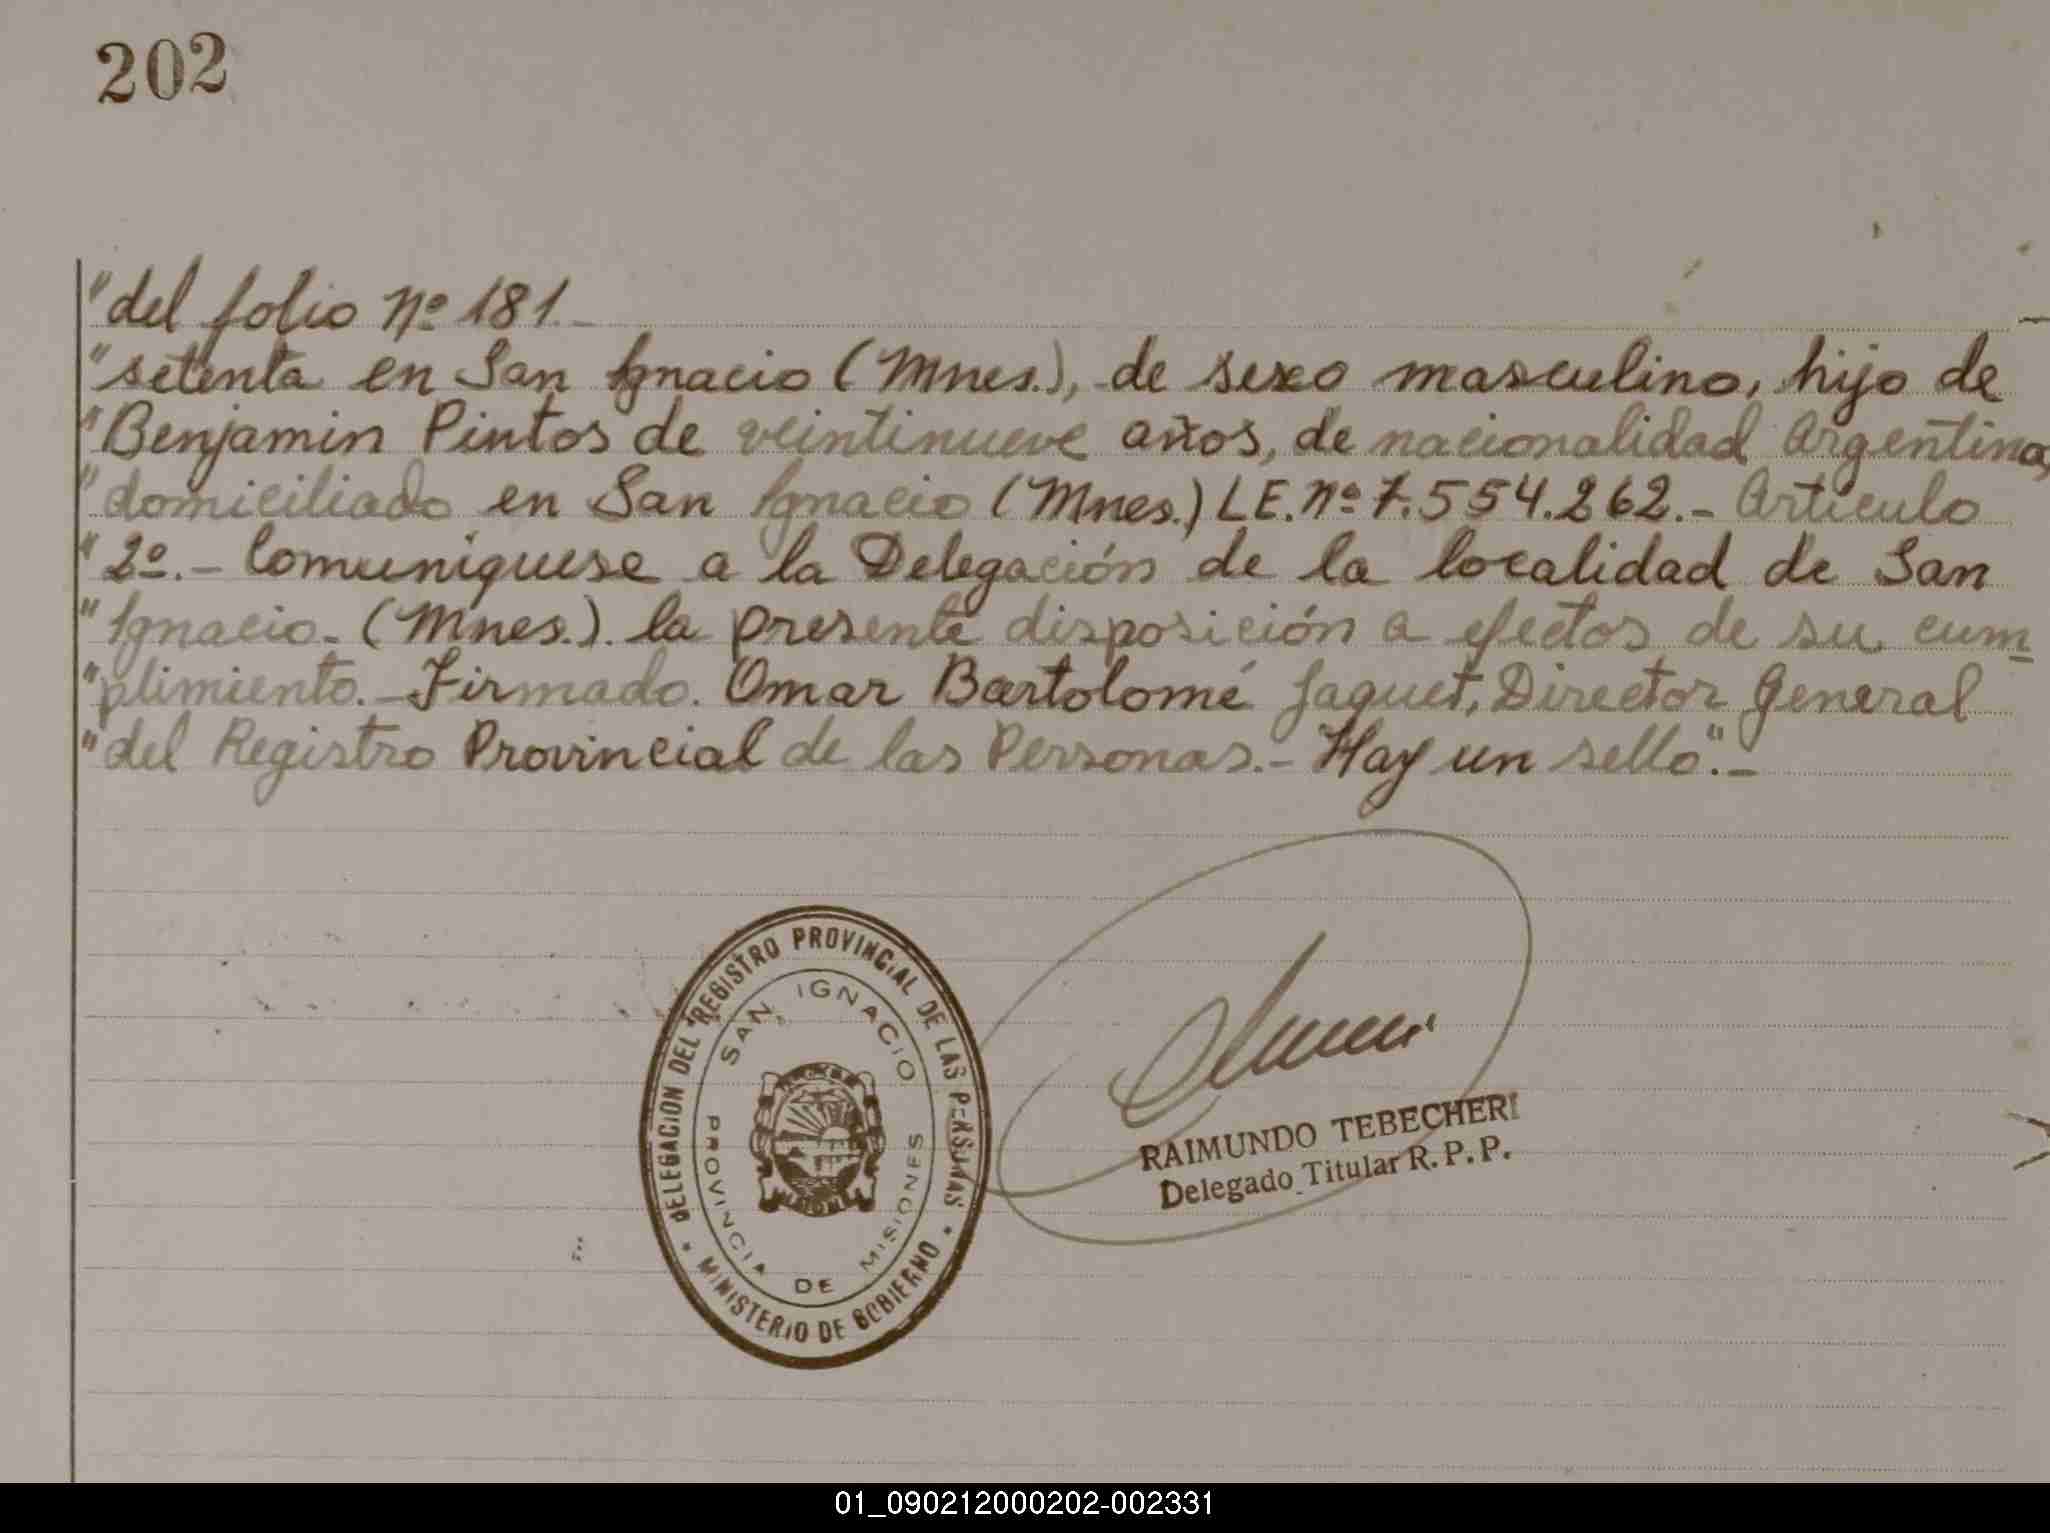 202
"del folio Nº 181.-
"setenta en San Ignacio (Mnes.), de sexo masculino, hijo de
"Benjamin Pintos de veintinueve años, de nacionalidad Argentina,
"domiciliado en San Ignacio (Mnes.) L.E. Nº 7.554.262.- Artículo
"2º.- Comuníquese a la Delegación de la localidad de San
"Ignacio. (Mnes.). la presente disposición a efectos de su cum-
"plimiento.- Firmado. Omar Bartolomé Jaquet, Director General
"del Registro Provincial de las Personas.- Hay un sello".-
DELEGACION DEL REGISTRO PROVINCIAL DE LAS PERSONAS
* MINISTERIO DE GOBIERNO *
SAN IGNACIO
PROVINCIA DE MISIONES
RAIMUNDO TEBECHERI
Delegado Titular R. P. P.
01_090212000202-002331